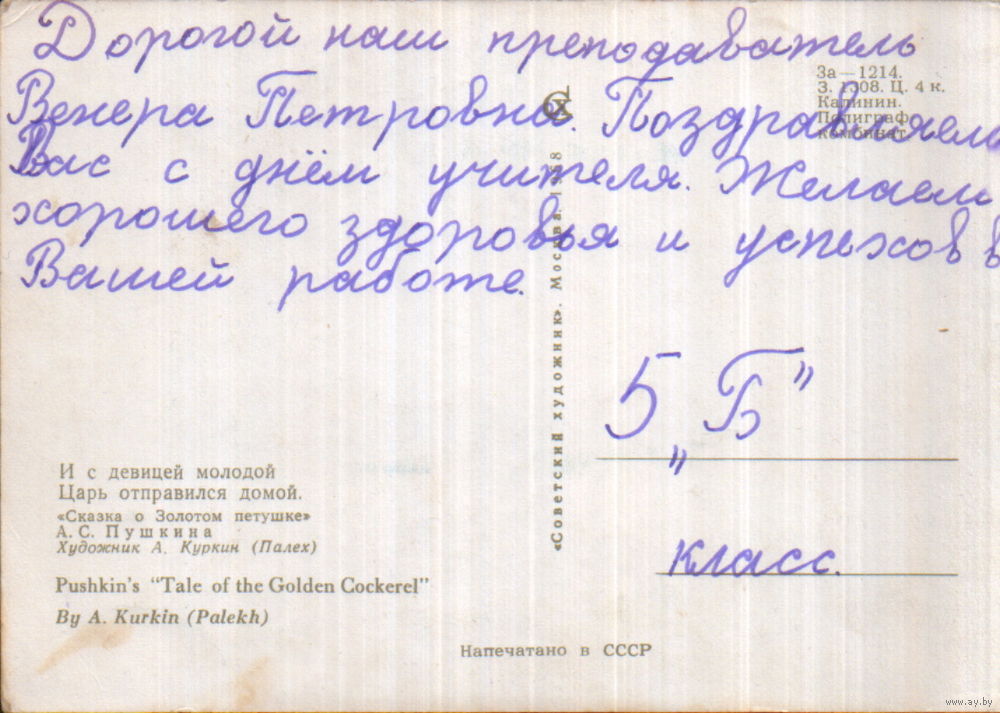 Дорогой наш преподаватель
Венера Петровна. Поздравляем
Вас с днём учителя. Желаем
хорошего здоровья и успехов в
Вашей работе.
5 „Б"
класс.
За—1214.
З. 1308. Ц. 4 к.
Калинин.
Полиграф.
комбинат.
«Советский художник». Москва. 1968
И с девицей молодой
Царь отправился домой.
«Сказка о Золотом петушке»
А. С. Пушкина
Художник А. Куркин (Палех)
Pushkin's "Tale of the Golden Cockerel"
By A. Kurkin (Palekh)
Напечатано в СССР
www.ay.by